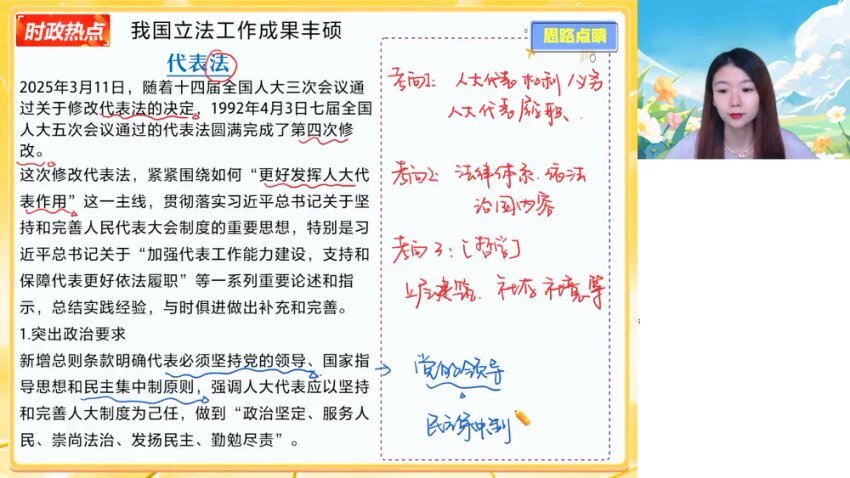 时政热点
我国立法工作成果丰硕
思路点睛
代表法
2025年3月11日，随着十四届全国人大三次会议通
过关于修改代表法的决定，1992年4月3日七届全国
人大五次会议通过的代表法圆满完成了第四次修
改。
这次修改代表法，紧紧围绕如何“更好发挥人大代
表作用”这一主线，贯彻落实习近平总书记关于坚
持和完善人民代表大会制度的重要思想，特别是习
近平总书记关于“加强代表工作能力建设，支持和
保障代表更好依法履职”等一系列重要论述和指
示，总结实践经验，与时俱进做出补充和完善。
1.突出政治要求
新增总则条款明确代表必须坚持党的领导、国家指
导思想和民主集中制原则，强调人大代表应以坚持
和完善人大制度为己任，做到“政治坚定、服务人
民、崇尚法治、发扬民主、勤勉尽责”。
考向1: 人大代表权利/义务
人大代表履职、
考向2: 法律体系.依法
治国内容
考向3:[哲学]
上层建筑、社存社意等
→ 党的领导
民主集中制